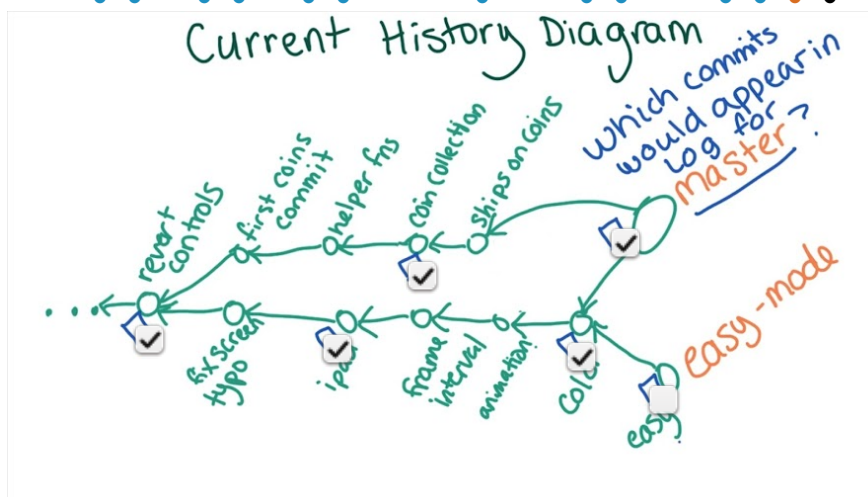 Current History Diagram
which commits
would appear in
log for
master?
revert
controls
first coins
commit
helper fns
coin collection
ships on coins
fix screen
typo
frame
interval
animation
easy-mode
easy